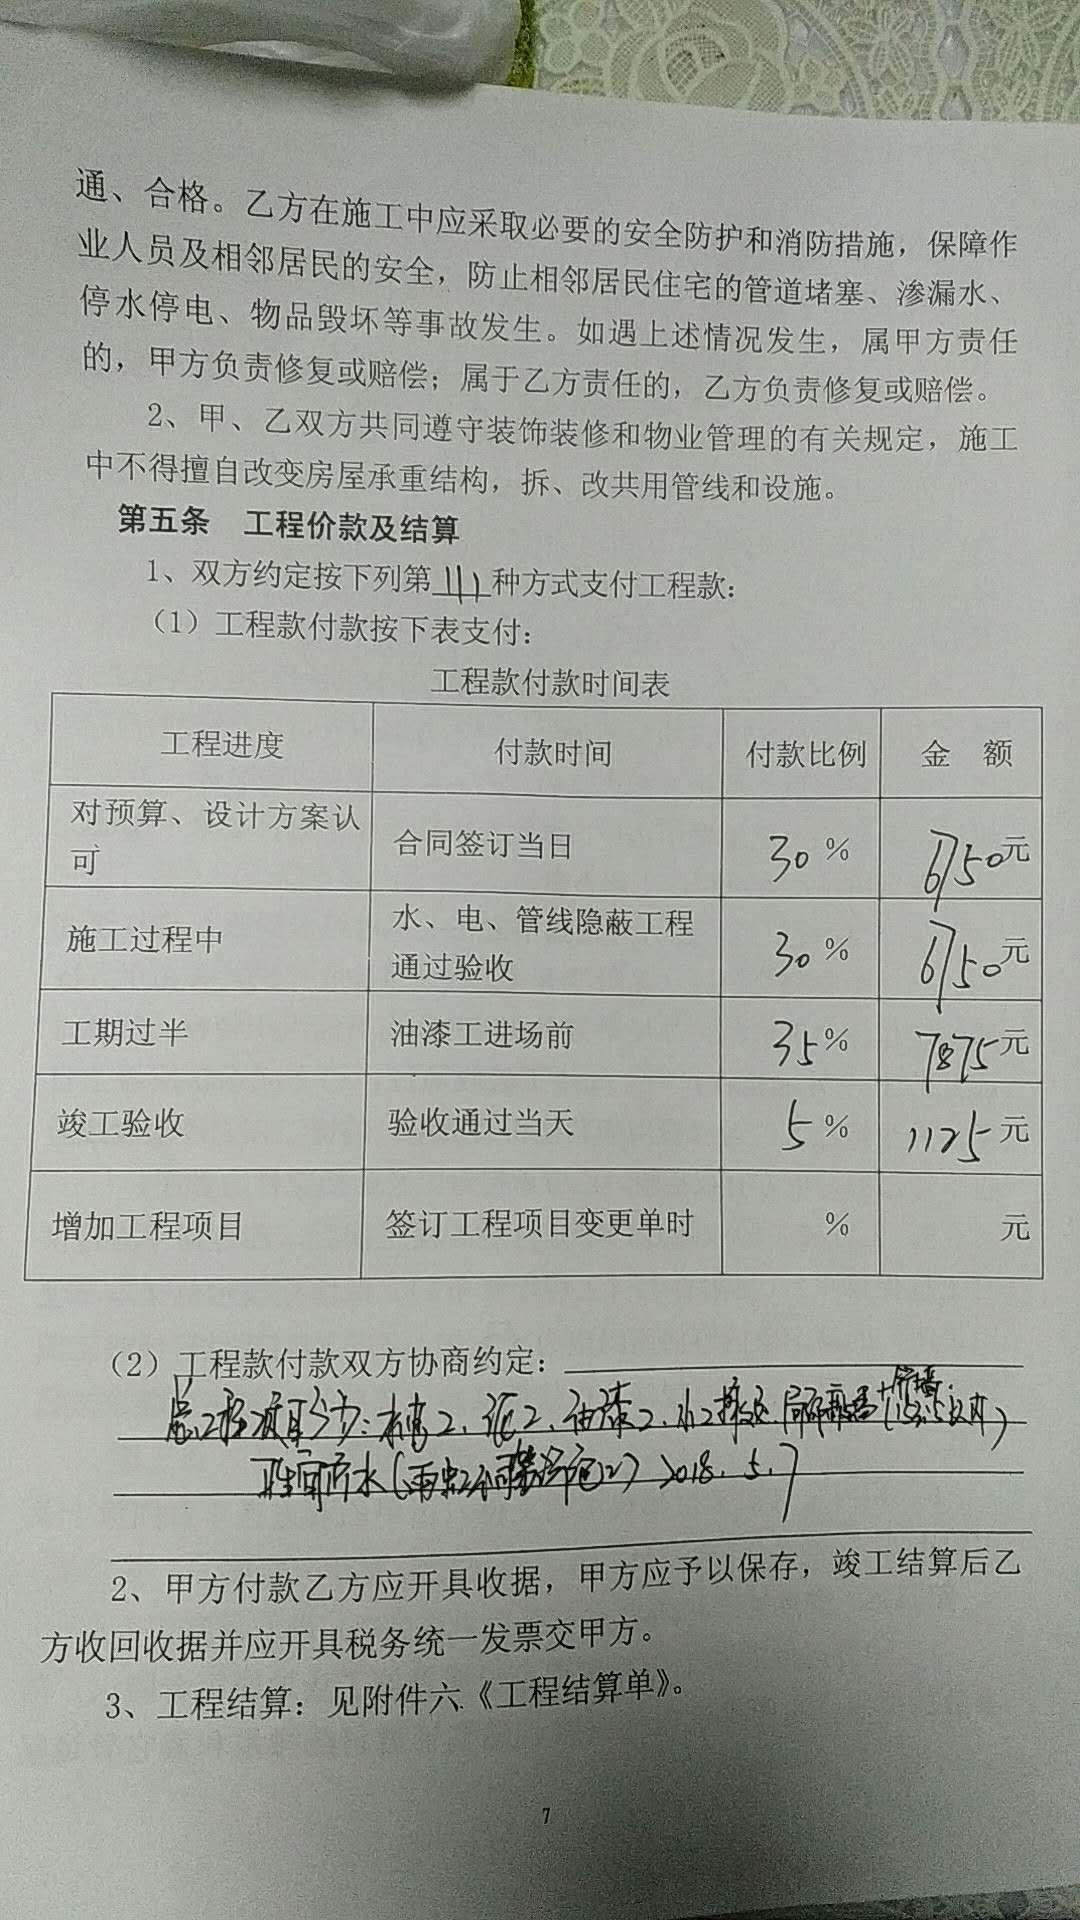 通、合格。乙方在施工中应采取必要的安全防护和消防措施，保障作
业人员及相邻居民的安全，防止相邻居民住宅的管道堵塞、渗漏水、
停水停电、物品毁坏等事故发生。如遇上述情况发生，属甲方责任
的，甲方负责修复或赔偿；属于乙方责任的，乙方负责修复或赔偿。
2、甲、乙双方共同遵守装饰装修和物业管理的有关规定，施工
中不得擅自改变房屋承重结构，拆、改共用管线和设施。
第五条 工程价款及结算
1、双方约定按下列第 种方式支付工程款：
（1）工程款付款按下表支付：
工程款付款时间表
工程进度 付款时间 付款比例 金 额
对预算、设计方案认
可 合同签订当日 30 % 6750元
施工过程中 水、电、管线隐蔽工程
通过验收 30 % 6750元
工期过半 油漆工进场前 35% 7875元
竣工验收 验收通过当天 5 % 1125元
增加工程项目 签订工程项目变更单时 % 元
（2）工程款付款双方协商约定：
工程项目 工、泥工、油漆工、水工
防水 2018.5.7
2、甲方付款乙方应开具收据，甲方应予以保存，竣工结算后乙
方收回收据并应开具税务统一发票交甲方。
3、工程结算：见附件六《工程结算单》。
7